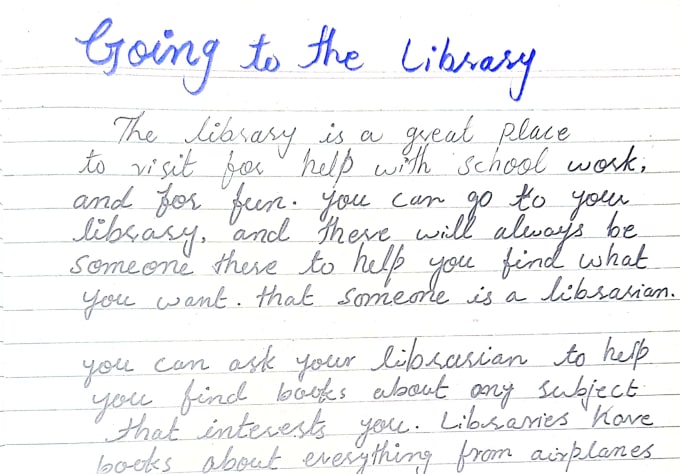 Going to the Library
The library is a great place
to visit for help with school work,
and for fun. you can go to your
library, and there will always be
someone there to help you find what
you want. that someone is a librarian.
you can ask your librarian to help
you find books about any subject
that interests you. Libraries have
books about everything from airplanes